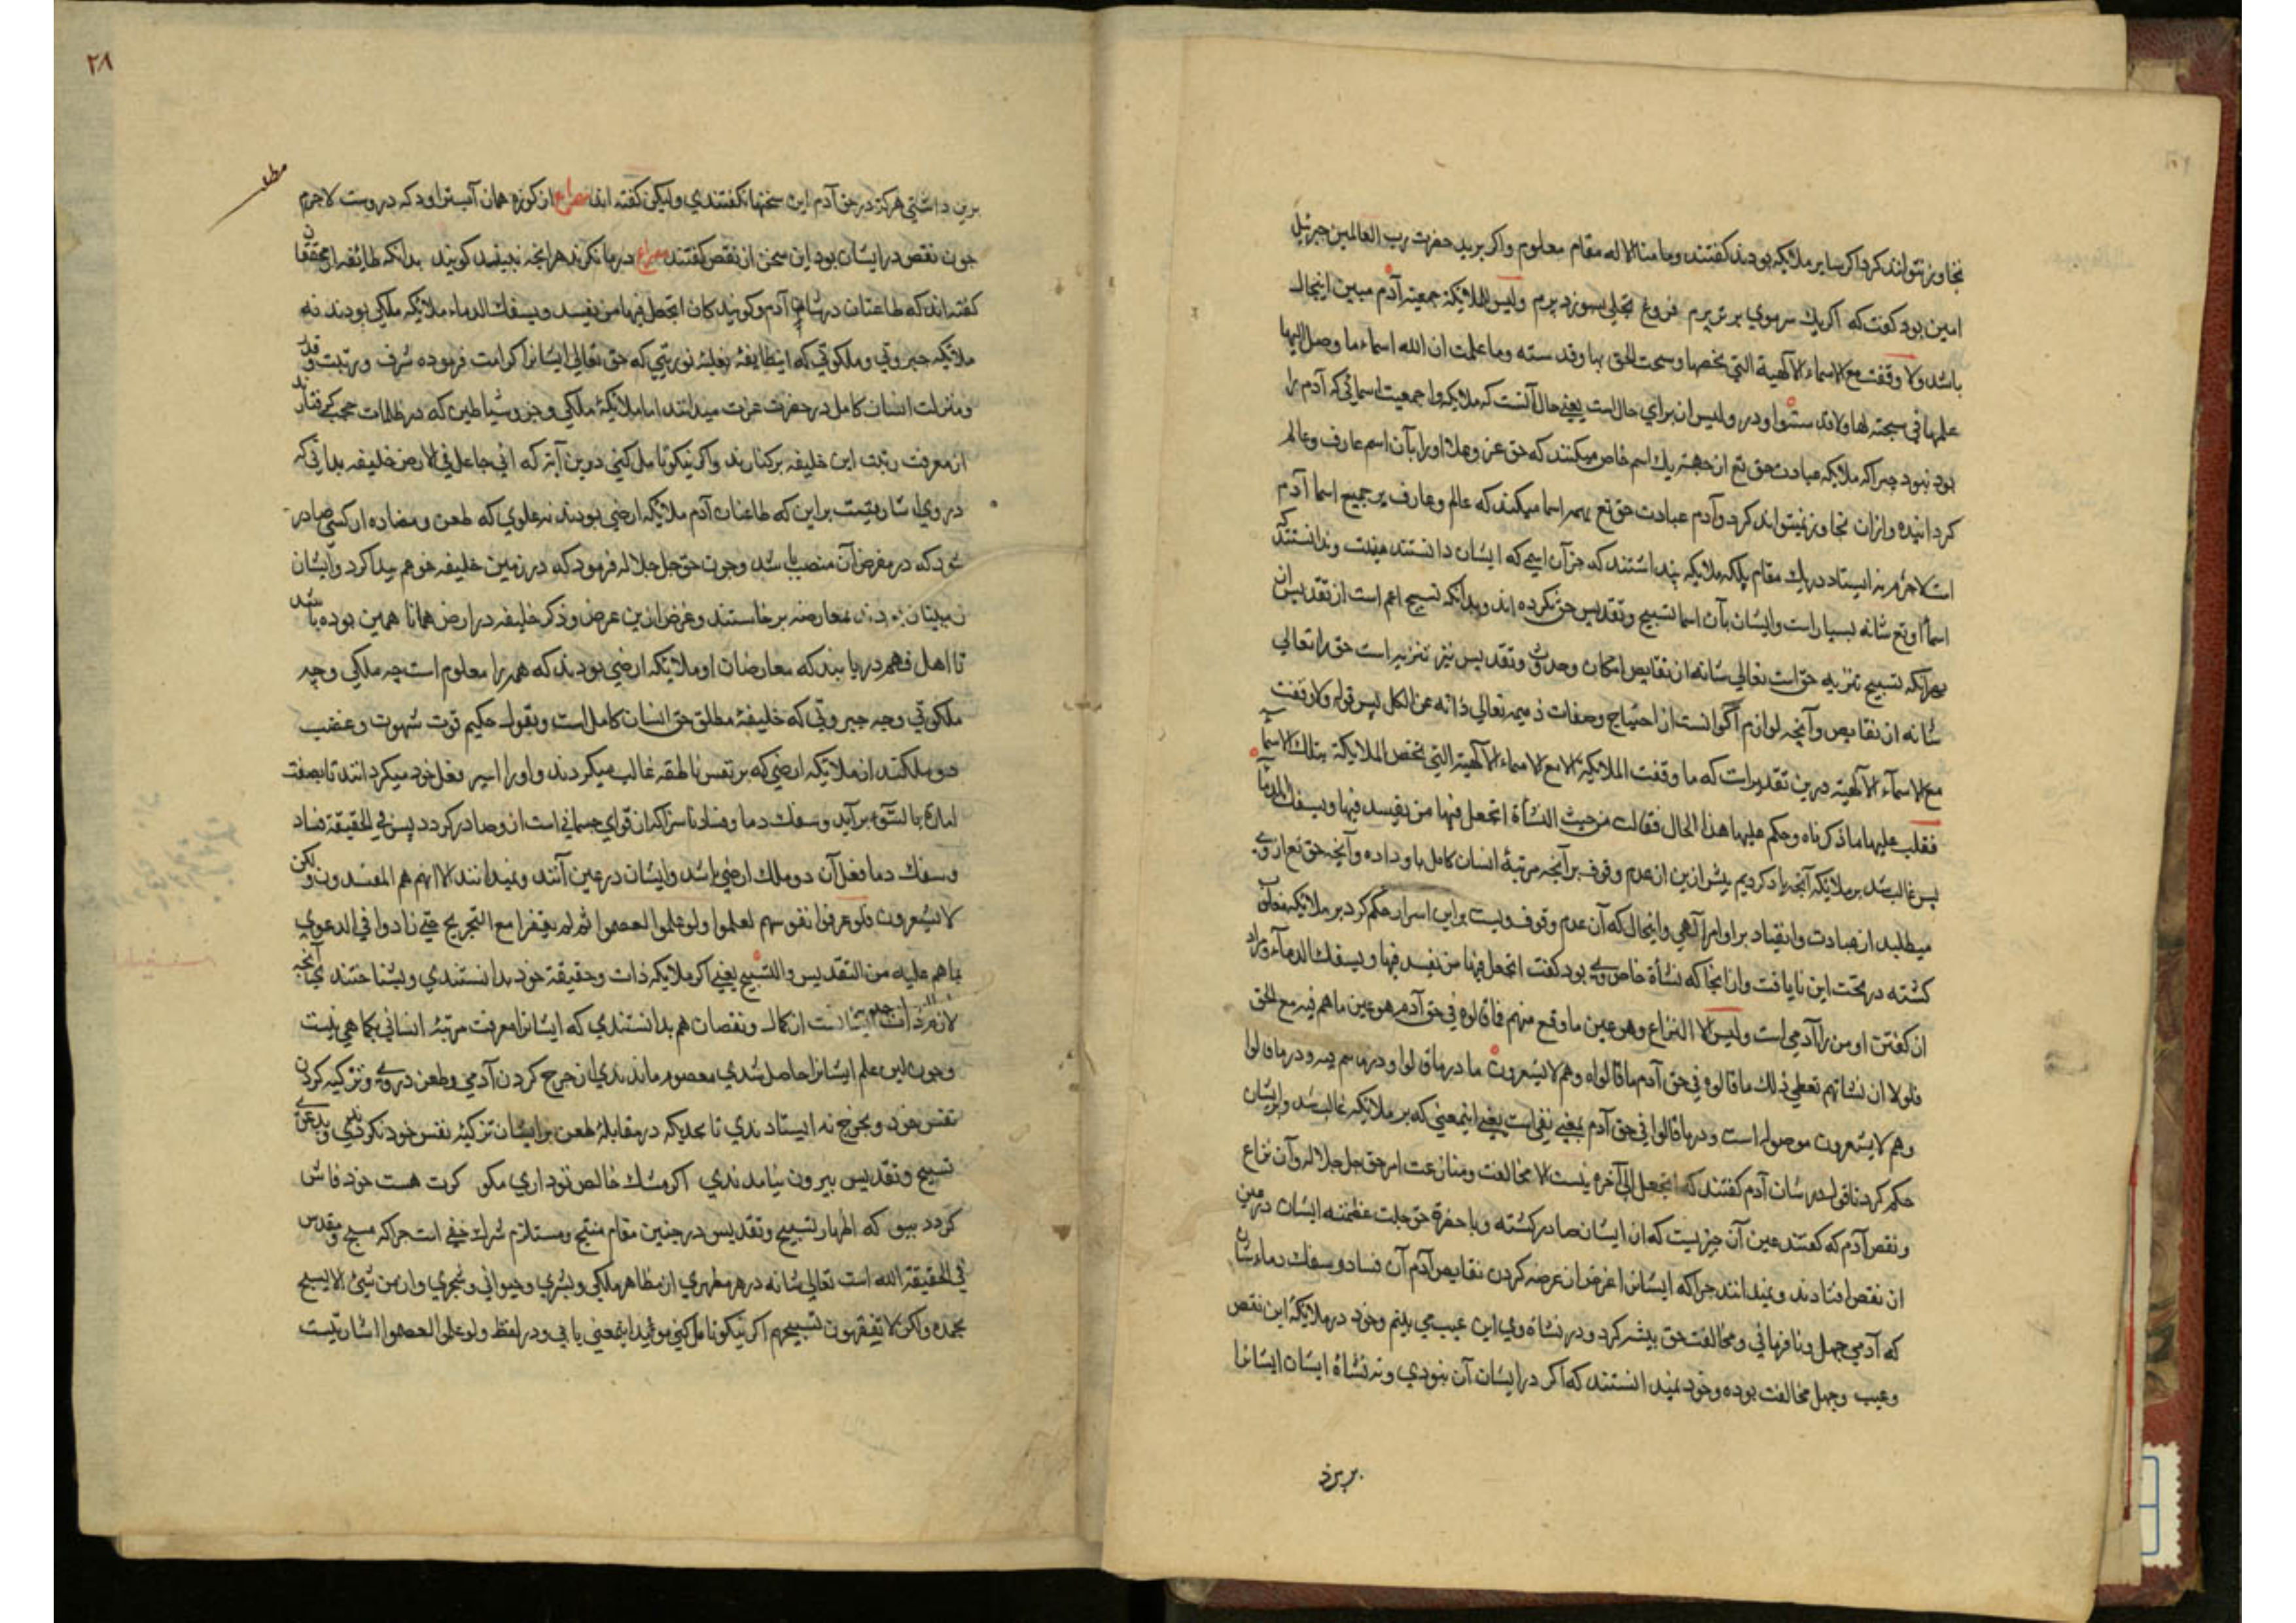 تجاوز نتواند کرد اکر سایر ملائیکه بودند کفتند وما منا الا له مقام معلوم واکر برید حضرت رب العالمین جبرئیل
امین بود کفت که اکر یك سرموی برتر پرم فروغ تجلی بسوزد پرم ولیس للملائیکة جمعیته آدم مبین اینحال
باشد ولا وقفت مع الاسماء الآلهیة التی تخصها وسبحت الحق بها وقدسته وما علمت ان الله اسماء ما وصل الیها
علمها فی سبحته لها ولا قدسته واو در ولیس از برای حال است یعنی حال آنست که ملائیکه را جمعیت اسمائی که آدم را
بود نبود چراکه ملائیکه عبادت حق تع از جهة یك اسم خاص میکنند که حق عز وعلا اورا بآن اسم عارف وعالم
کردانیده وازان تجاوز نمیتواند کرد وآدم عبادت حق تع بهمه اسما میکند که عالم وعارف بر جمیع اسما آدم
است لاجرم نه ایستاد در یك مقام بلکه ملائیکه پنداشتند که جز آن اسمی که ایشان دانستند نیست وندانستند که
اسماء او تع شانه بسیار است وایشان بآن اسما تسبیح وتقدیس حق نکرده اند وبدانکه تسبیح اعم است از تقدیس
بهرآنکه تسبیح تنزیه حق است تعالی شانه از نقایص امکان وحدوث وتقدیس نیز تنزیه است حق را تعالی
شانه از نقایص وآنچه لوازم اکوانست از احتیاج وصفات ذمیمه تعالی ذاته عن الکل پس قوله ولا وقفت
مع الاسمآء الآلهیه درین تقدیر است که ما وقفت الملائیکة الا مع الاسماء الآلهیة التی تخص الملائیکة بتلك الاسمآء
فغلب علیها ما ذکرناه وحکم علیها هذا الحال فقالت من حیث النشأة اتجعل فیها من یفسد فیها ویسفك الدمآء
پس غالب شد بر ملائیکه آنچه یاد کردیم پیش ازین از عدم وقوف بر آنچه مرتبهٔ انسان کامل باو داده وآنچه حق تع از وی
میطلبد از عبادت وانقیاد بر اوامر آلهی واینحال که آن عدم وقوف ویست بر این اسرار حکم کرد بر ملائیکه
کشته در تحت این نایافت واز انجا که نشأة خاص وی بود کفت اتجعل فیها من یفسد فیها ویسفك الدمآء ومراد
از کفتن او من را آدمی است ولیس الا النزاع وهو عین ما وقع منهم فما قالوه فی حق آدم هو عین ما هم فیه مع الحق
فلولا ان نشاتهم تعطی ذلك ما قالوه فی حق آدم ما قالواه وهم لا یشعرون ما در ما قالوا ودر ما هم فیه ودر ما قالوا
وهم لا یشعرون موصوله است ودر ما قالوا فی حق آدم بمعنی نفی است یعنی اینمعنی که بر ملائیکه غالب شد وبر ایشان
حکم کرد تا قول در شان آدم کفتند که اتجعل الی آخره نیست الا مخالفت ومنازعت امر حق جل جلاله وآن نزاع
ونقص آدم که کفتند عین آن چیزیست که از ایشان صادر کشته وبا حضرة حق جلت عظمته ایشان در عین
آن نقص افتادند ونمیدانند چراکه ایشانرا غرض از عرضه کردن نقایص آدم آن فساد وسفك دماء شان
که آدمی جهل ونافرمانی ومخالفت حق بیشتر کرد ودر نشاة وی این عیب می بینم وخود در ملائیکه این نقص
وعیب وجهل مخالفت بوده وخود نمیدانستند که اکر در ایشان آن نبودی ونه نشاة ایشان ایشانرا
برین
٢٨
مطلب
برین داشتی هرکز در حق آدم این سخنها نکفتندی ولیکن کفته اند مصراع از کوزه همان آب تراود که دروست لاجرم
چون نقص در ایشان بود این سخن از نقص کفتند مصراع درما نکرند هرانچه بینند کویند بدانکه طائفهٔ از محققان
کفته اند که طاعنان در شان آدم وکویند کان اتجعل فیها من یفسد ویسفك الدماء ملائیکه ملکی بودند نه
ملائیکه جبروتی وملکوتی که اینطایفه غلبهٔ نوریتی که حق تعالی ایشانرا کرامت فرموده شرف ورتبت وقدر
ومنزلت انسان کامل در حضرت عزت میدانند اما ملائیکهٔ ملکی وجن وشیاطین که در ظلمات حجب کرفتارند
از معرفت رتبت این خلیفه برکنارند واکر نیکو تامل کنی درین آیة که انی جاعل فی الارض خلیفه بدانی که
دروی اشاریتست براین که طاعنان آدم ملائیکه ارضی بودند نه علوی که طعن ومضاده از کسی صادر
شود که در معرض آن منصب باشد وچون حق جل جلاله فرمود که در زمین خلیفه خواهم پیدا کرد وایشان
زمینیان بودند بمعارضه برخاستند وغرض ازین عرض وذکر خلیفه در ارض همانا همین بوده باشد
تا اهل فهم دریابند که معارضان او ملائیکه ارضی بودند که همه را معلوم است چه ملکی وچه
ملکوتی وچه جبروتی که خلیفهٔ مطلق حق انسان کامل است وبقول حکیم قوت شهوت وغضب
دو ملکند از ملائیکه ارضی که بر نفس ناطقه غالب میکردند واورا اسیر فعل خود میکردانند تا بصفت
امارة بالسوء برآید وسفك دما وفساد ناسزا که از قوای جسمانی است ازو صادر کردد پس فی الحقیقة فساد
وسفك دما فعل آن دو ملك ارضی باشد وایشان در عین آنند ونمیدانند الا انهم هم المفسدون ولکن
لا یشعرون فلو عرفوا نفوسهم لعلموا ولو علموا لعصموا ثم لم یقفوا مع التجریح حتی زادوا فی الدعوی
بما هم علیه من التقدیس والتسبیح یعنی اکر ملائیکه ذات وحقیقة خود بدانستندی وبشناختندی آنچه
لازم ذات ایشانست از کمال ونقصان هم بدانستندی که ایشانرا معرفت مرتبهٔ انسانی بکما هی نیست
وچون این علم ایشانرا حاصل شدی معصوم ماندندی از جرح کردن آدمی وطعن دروی وتزکیه کردن
نفس خود وبجرح نه ایستادندی تا بحدیکه در مقابلهٔ طعن بر ایشان تزکیهٔ نفس خود نکردندی وبدعوی
تسبیح وتقدیس بیرون نیامدندی اکر مشك خالص تو داری مکو کرت هست خود فاش
کردد ببوی که اظهار تسبیح وتقدیس در چنین مقام منتج ومستلزم شرك خفی است چراکه مسبح ومقدس
فی الحقیقة الله است تعالی شانه در هر مظهری از مظاهر ملکی وبشری وحیوانی وشجری وان من شیئ الا یسبح
بحمده ولکن لا تفقهون تسبیحهم اکر نیکو تامل کنی مؤید اینمعنی یابی ودر لفظ ولو علموا لعصموا اشاریتست